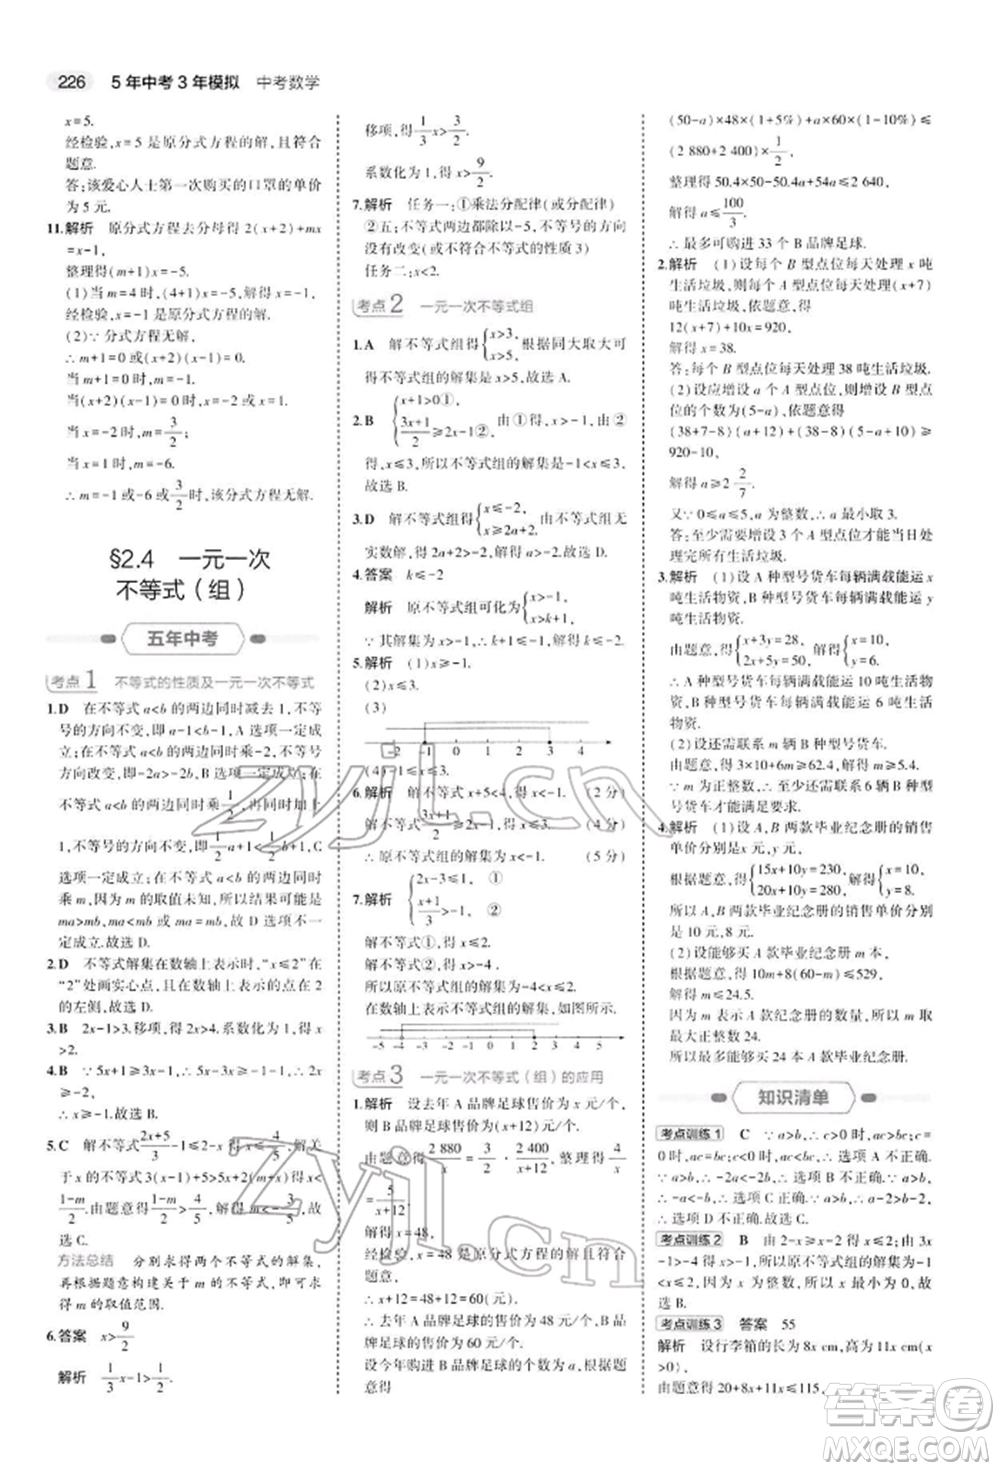 226 5年中考3年模拟 中考数学
x=5.
经检验,x=5是原分式方程的解,且符合
题意.
答:该爱心人士第一次购买的口罩的单价
为5元.
11.解析 原分式方程去分母得2(x+2)+mx
=x-1,
整理得(m+1)x=-5.
(1)当m=4时,(4+1)x=-5,解得x=-1,
经检验,x=-1是原分式方程的解.
(2)∵分式方程无解,
∴m+1=0或(x+2)(x-1)=0,
当m+1=0时,m=-1;
当(x+2)(x-1)=0时,x=-2或x=1.
当x=-2时,m=3/2;
当x=1时,m=-6.
∴m=-1或-6或3/2时,该分式方程无解.
§2.4 一元一次
不等式(组)
五年中考
考点1 不等式的性质及一元一次不等式
1.D 在不等式a<b的两边同时减去1,不等
号的方向不变,即a-1<b-1,A选项一定成
立.在不等式a<b的两边同时乘-2,不等号
方向改变,即-2a>-2b,B选项一定成立;
不等式a<b的两边同时乘1/2,再同时加
1,不等号方向不变,即1/2a+1<1/2b+1,C
选项一定成立.在不等式a<b的两边同时
乘m,因为m的取值未知,所以可能出现
ma>mb,ma<mb或ma=mb,D选项不一
定成立.故选D.
2.D 不等式解集在数轴上表示时,“x≤2”
在“2”处画实心点,方向向左,即在表示2的点
的左侧,故选D.
3.B 2x-1>3.移项,得2x>4.系数化为1,得x
>2.
4.B
∴x>-1.故选B.
5.C 解不等式(2x+5)/3-1≤2-x得x≤4/5,解关
于x的不等式3(x-1)+5>5x+2(m+x)得x<
(1-m)/2.由题意得(1-m)/2>4/5,解得m<-3/5.故
选C.
方法总结 分别求得两个不等式的解集,
再根据题意构建关于m的不等式,从而
求得m的取值范围.
6.答案 x>9/2
解析 1/3x-1>1/2.
移项,得1/3x>3/2.
系数化为1,得x>9/2.
7.解析 任务一:①乘法分配律(或分配律)
②五;不等式两边都除以-5,不等号的方向
没有改变(或不符合不等式的性质3)
任务二:x<2.
考点2 一元一次不等式组
1.A 解不等式组得{x>3, x>5,根据同大取大可
得不等式组的解集是x>5,故选A.
2.B {x+1>0①, (3x+1)/2≥2x-1②, 由①得,x>-1,由②
得,x≤3,所以不等式组的解集是-1<x≤3,
故选B.
3.D 解不等式组得{x≤-2, x≥2a+2,∵不等式组无
实数解,∴2a+2>-2,解得a>-2,故选D.
4.答案 k≤-2
解析 原不等式组可化为{x>-1, x>k+1,
∵其解集为x>-1,∴k+1≤-1,∴k≤-2.
5.解析 (1)x≥-1.
(2)x≤3.
(3)
-2 -1 0 1 2 3 4
(4)-1≤x≤3.
6.解析 解不等式x+5<4,得x<-1. (2分)
解不等式(3x+1)/2≥2x-1,得x≤3. (4分)
∴原不等式组的解集为x<-1. (5分)
7.解析 {2x-3≤1, ① (x+1)/3>-1, ②
解不等式①,得x≤2.
解不等式②,得x>-4.
所以原不等式组的解集为-4<x≤2.
在数轴上表示不等式组的解集如下:
-5 -4 -3 -2 -1 0 1 2 3 4 5
考点3 一元一次不等式(组)的应用
1.解析 设去年A品牌足球售价为x元/个,
则B品牌足球售价为(x+12)元/个.
由题意得2 880/x=5/2·2 400/(x+12),整理得(x+12)/x
=5/[4],
解得x=48,
经检验,x=48是原分式方程的解且符合
题意,
∴x+12=48+12=60.
∴去年A品牌足球的售价为48元/个,B
品牌足球的售价为60元/个.
设今年购进B品牌足球的个数为a,由题
意得
(50-a)×48×(1+5%)+a×60×(1-10%)≤
(2 880+2 400)×1/2,
整理得50.4×50-50.4a+54a≤2 640,
解得a≤100/3.
∴最多可购进33个B品牌足球.
2.解析 (1)设每个B型点位每天处理x吨
生活垃圾,则每个A型点位每天处理(x+7)
吨生活垃圾,依题意,得
12(x+7)+10x=920,
解得x=38.
答:每个B型点位每天处理38吨生活垃圾.
(2)设应增设a个A型点位,则增设B型点
位的个数为(5-a),依题意得
(38+7-8)(a+12)+(38-8)(5-a+10)≥
920-10,
解得a≥2 2/7.
又∵0≤a≤5,a为整数,∴a最小取3.
答:至少需要增设3个A型点位才能当日
处理完所有生活垃圾.
3.解析 (1)设A种型号货车每辆满载能运x
吨生活物资,B种型号货车每辆满载能运y
吨生活物资,
由题意,得{x+3y=28, 2x+5y=50,解得{x=10, y=6.
∴A种型号货车每辆满载能运10吨生活物
资,B种型号货车每辆满载能运6吨生活
物资.
(2)设还需联系m辆B种型号货车.
由题意得3×10+6m≥62.4,解得m≥5.4.
∵m为正整数,∴m最小取6.∴至少还需联系6辆B种型
号货车才能满足要求.
4.解析 (1)设A,B两款毕业纪念册的销售
单价分别为x元,y元,
根据题意得{15x+10y=230, 20x+10y=280,解得{x=10, y=8.
所以A,B两款毕业纪念册的销售单价分别
是10元,8元.
(2)设能够买A款毕业纪念册m本.
根据题意,得10m+8(60-m)≤529,
解得m≤24.5.
因为m为纪念册的数量,所以m应取
最大正整数24.
所以最多能够买24本A款毕业纪念册.
知识清单
考点训练1 C ∵a>b,∴c>0时,ac>bc;c=0
时,ac=bc;c<0时,ac<bc,故选项A不正确.∵a>b,
∴-2a<-2b,∴选项B不正确.∵a>b,∴-a
<-b,∴选项C正确.∵a>b,∴a-2>b-2,
∴选项D不正确.故选C.
考点训练2 B 由2-x≥x-2,得x≤2.由3x-1
>-4得x>-1.则不等式组的解集为-1
<x≤2,∴不等式组的所有整数解为0,1,2,故
选B.
考点训练3 答案 55
解析 设行李箱的长为8x cm,高为11x cm(x
>0),
由题意得20+8x+11x≤115,
zyjl.cn
zyjl.cn
答案圈
MXQE.COM